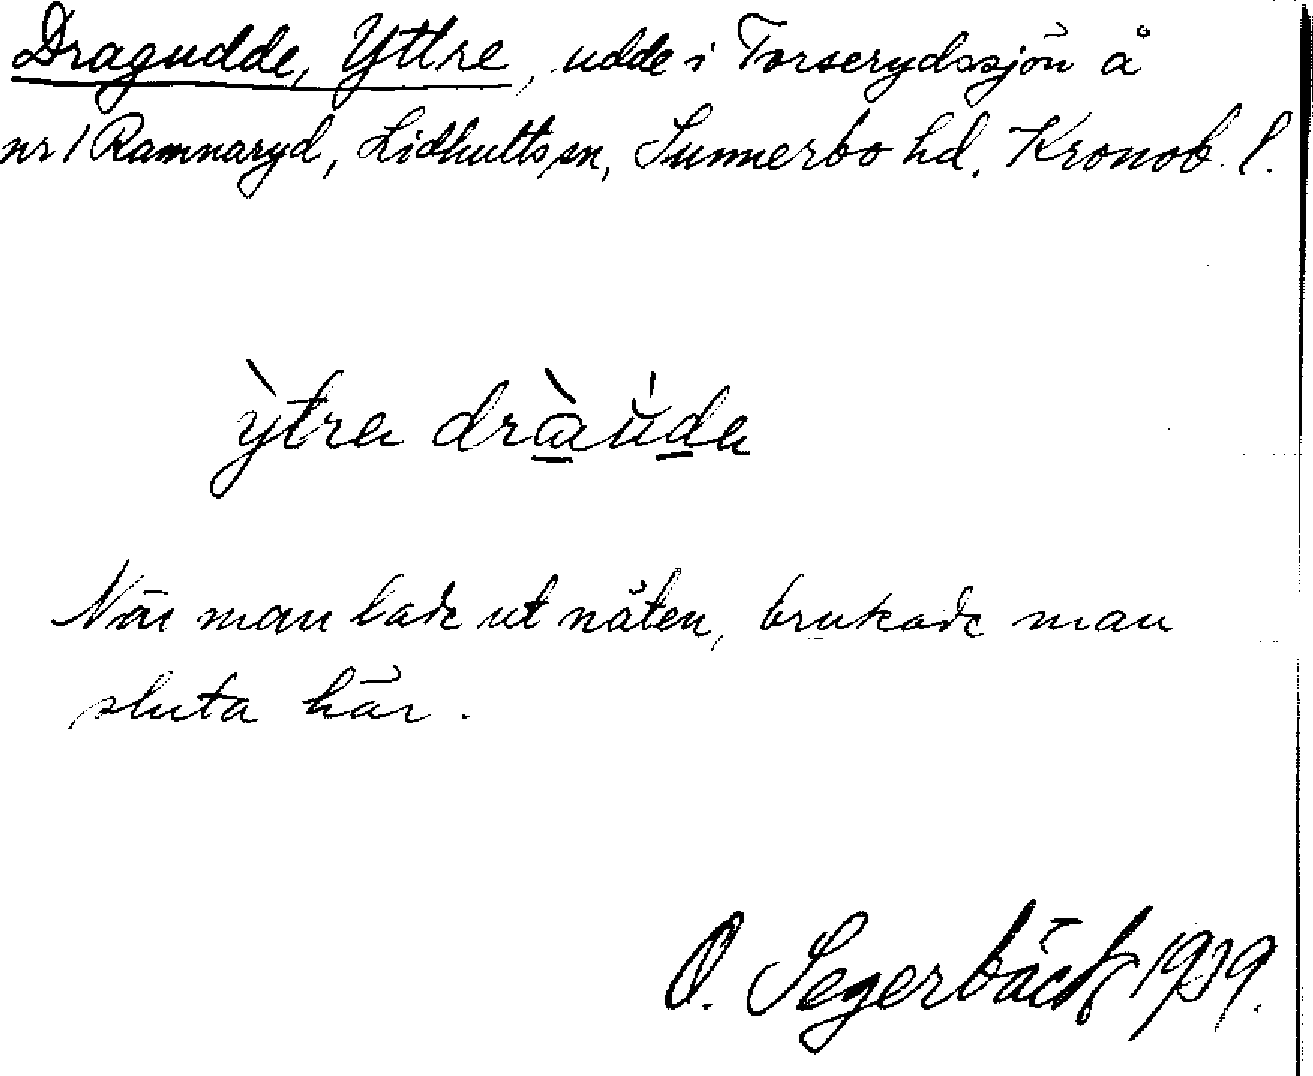 Dragudde, Yttre, udde i Torserydssjön å
nr 1 Ramnaryd, Lidhults sn, Sunnerbo hd. Kronob. l.
ỳtra dràu̍da
När man lade ut näten, brukade man
sluta här.
O. Segerbäck 1939.